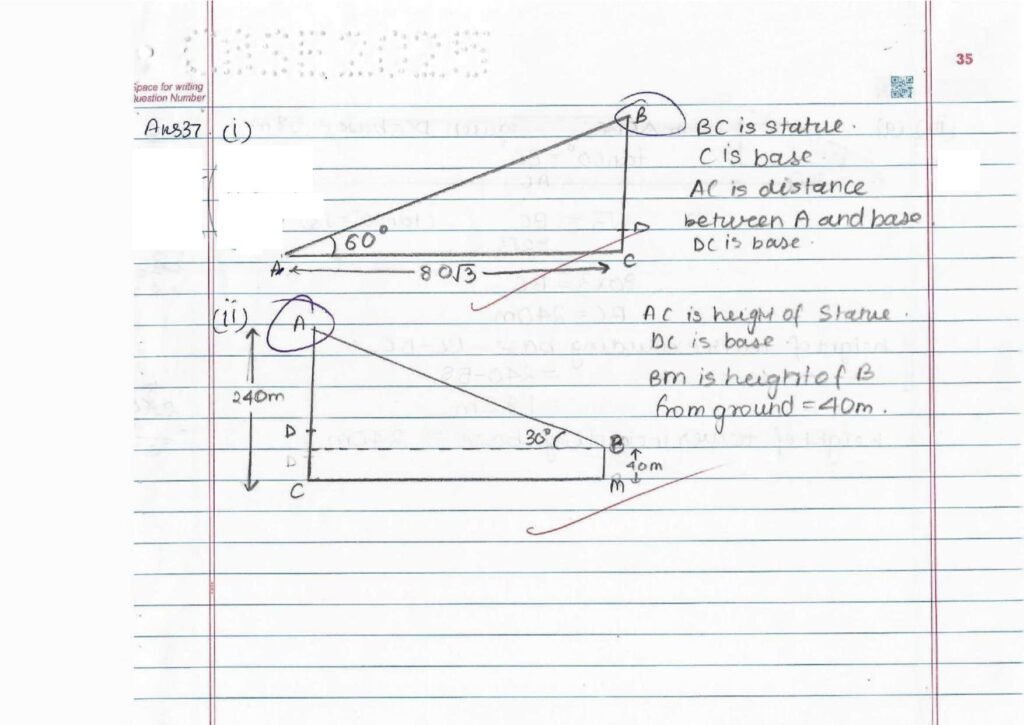 35
Space for writing
Question Number
Ans37. (i)
B
BC is statue.
C is base
AC is distance
between A and base.
DC is base.
60°
D
A
C
80√3
(ii)
A
AC is height of Statue.
DC is base
BM is height of B
from ground = 40m.
240m
D
30°
B
D
40m
C
M